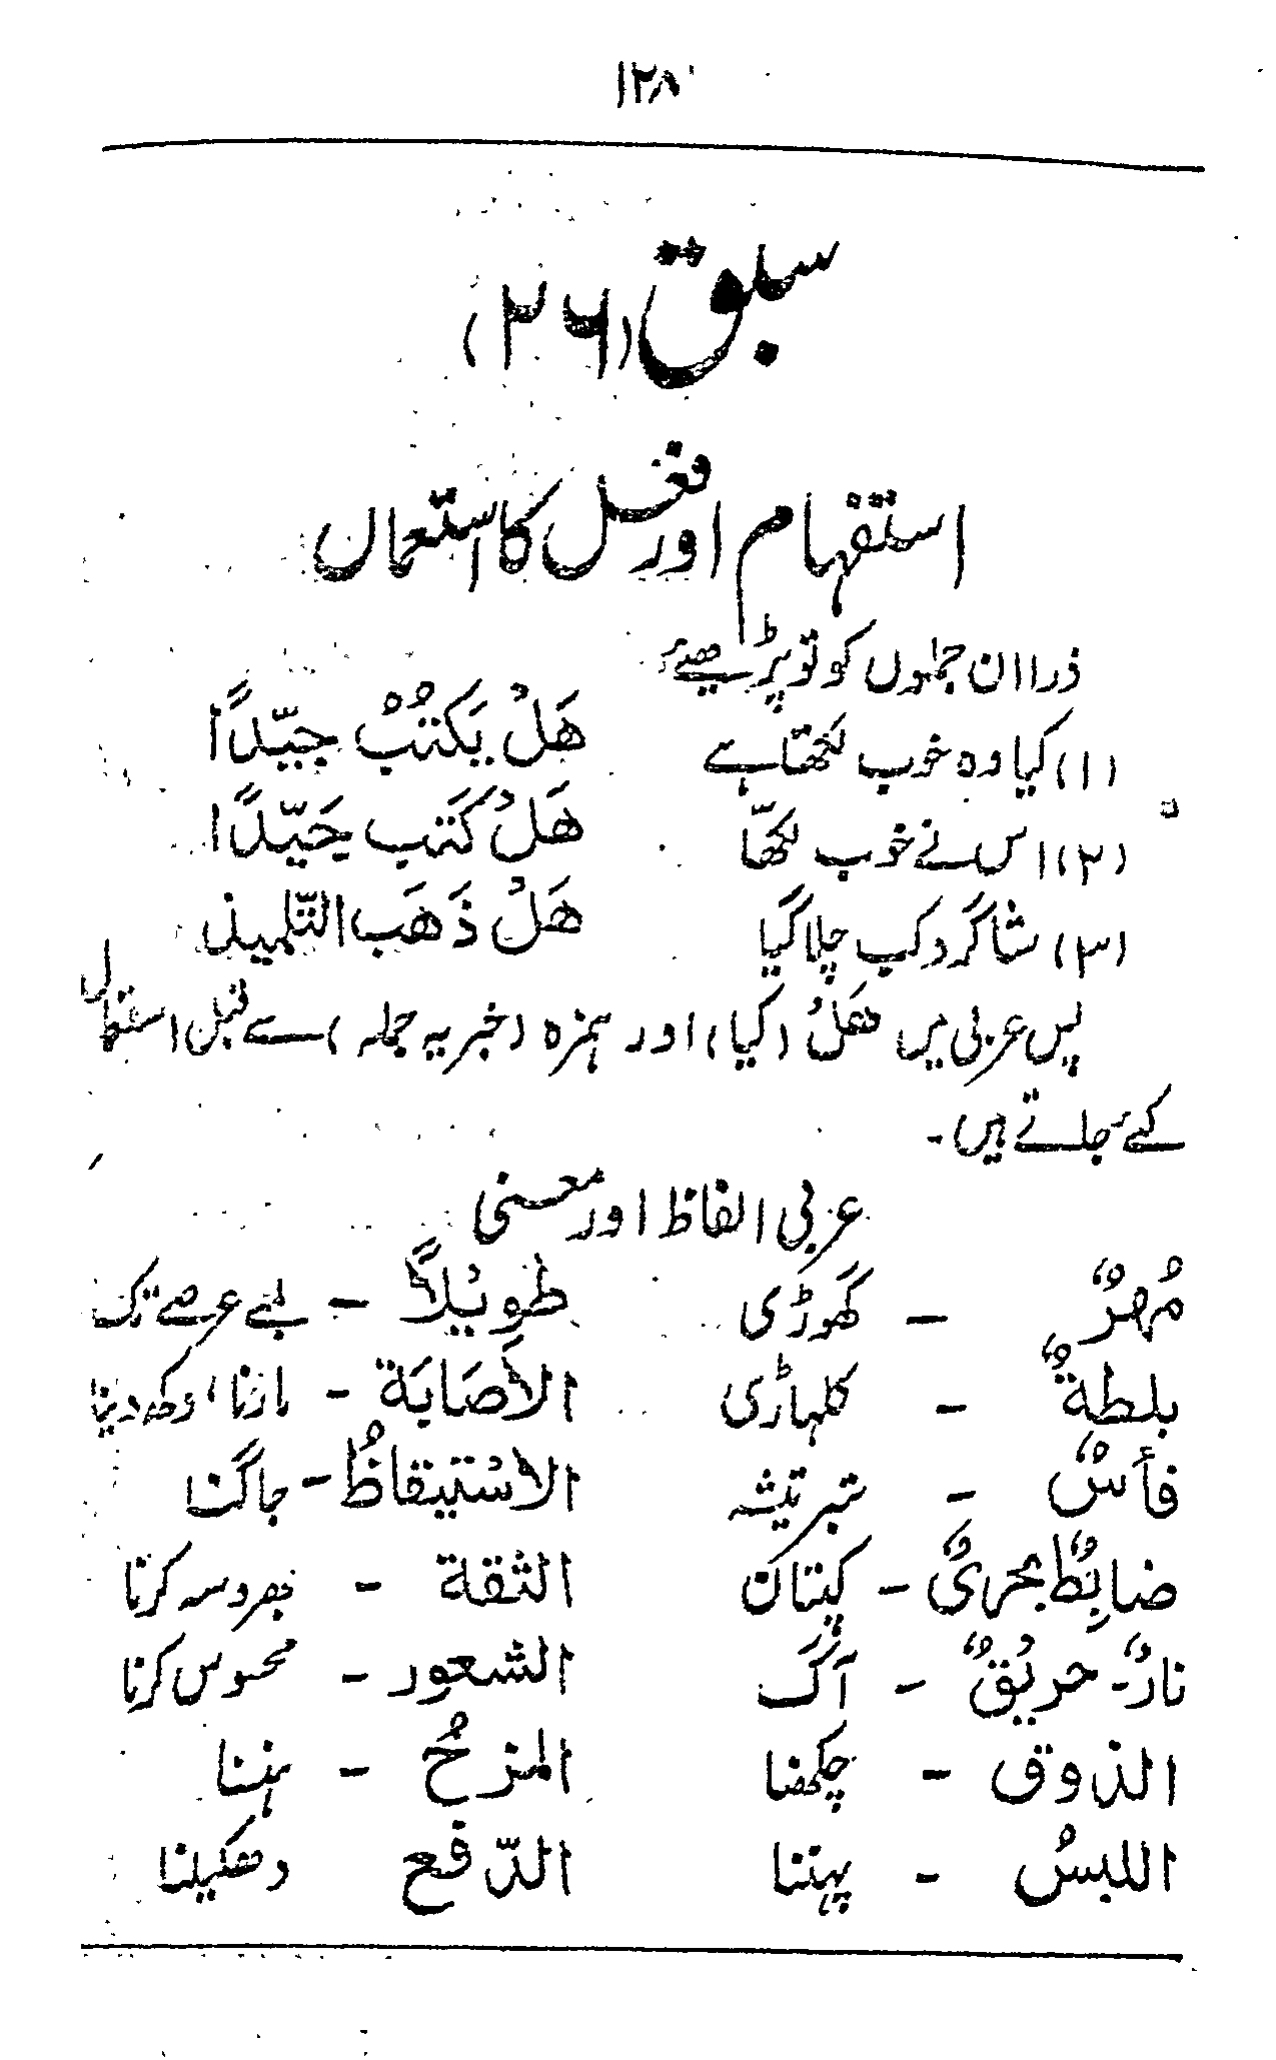 ۱۲۸
سبق (۲۶)
استفہام اور فعل کا استعمال
ذرا ان جملوں کو تو پڑھیئے
(۱) کیا وہ خوب لکھتا ہے هَلْ يَكتُبُ جيّداً
(۲) اس نے خوب لکھا هَلْ كَتَب جَيّداً
(۳) شاگرد کب چلا گیا هَلْ ذَهَب التّلميذ
پس عربی میں هَلْ (کیا) اور ہمزہ (خبریہ جملہ) سے قبل استعمال
کئے جاتے ہیں۔
عربی الفاظ اور معنی
مُهرٌ - گھوڑی طوِيْلاً - لمبے عرصے تک
بلطةٌ - کلہاڑی الاَصَابَة - مارنا، دکھ دینا
فأسٌ - تبر تیشہ الاسْتيقاظُ - جاگنا
ضابِطٌ بحریٌ - کپتان الثقة - بھروسہ کرنا
نارٌ - حريْقٌ - آگ الشعور - محسوس کرنا
الذوق - چکھنا المزحُ - ہنسنا
اللبسُ - پہننا الدّفع دھکیلنا